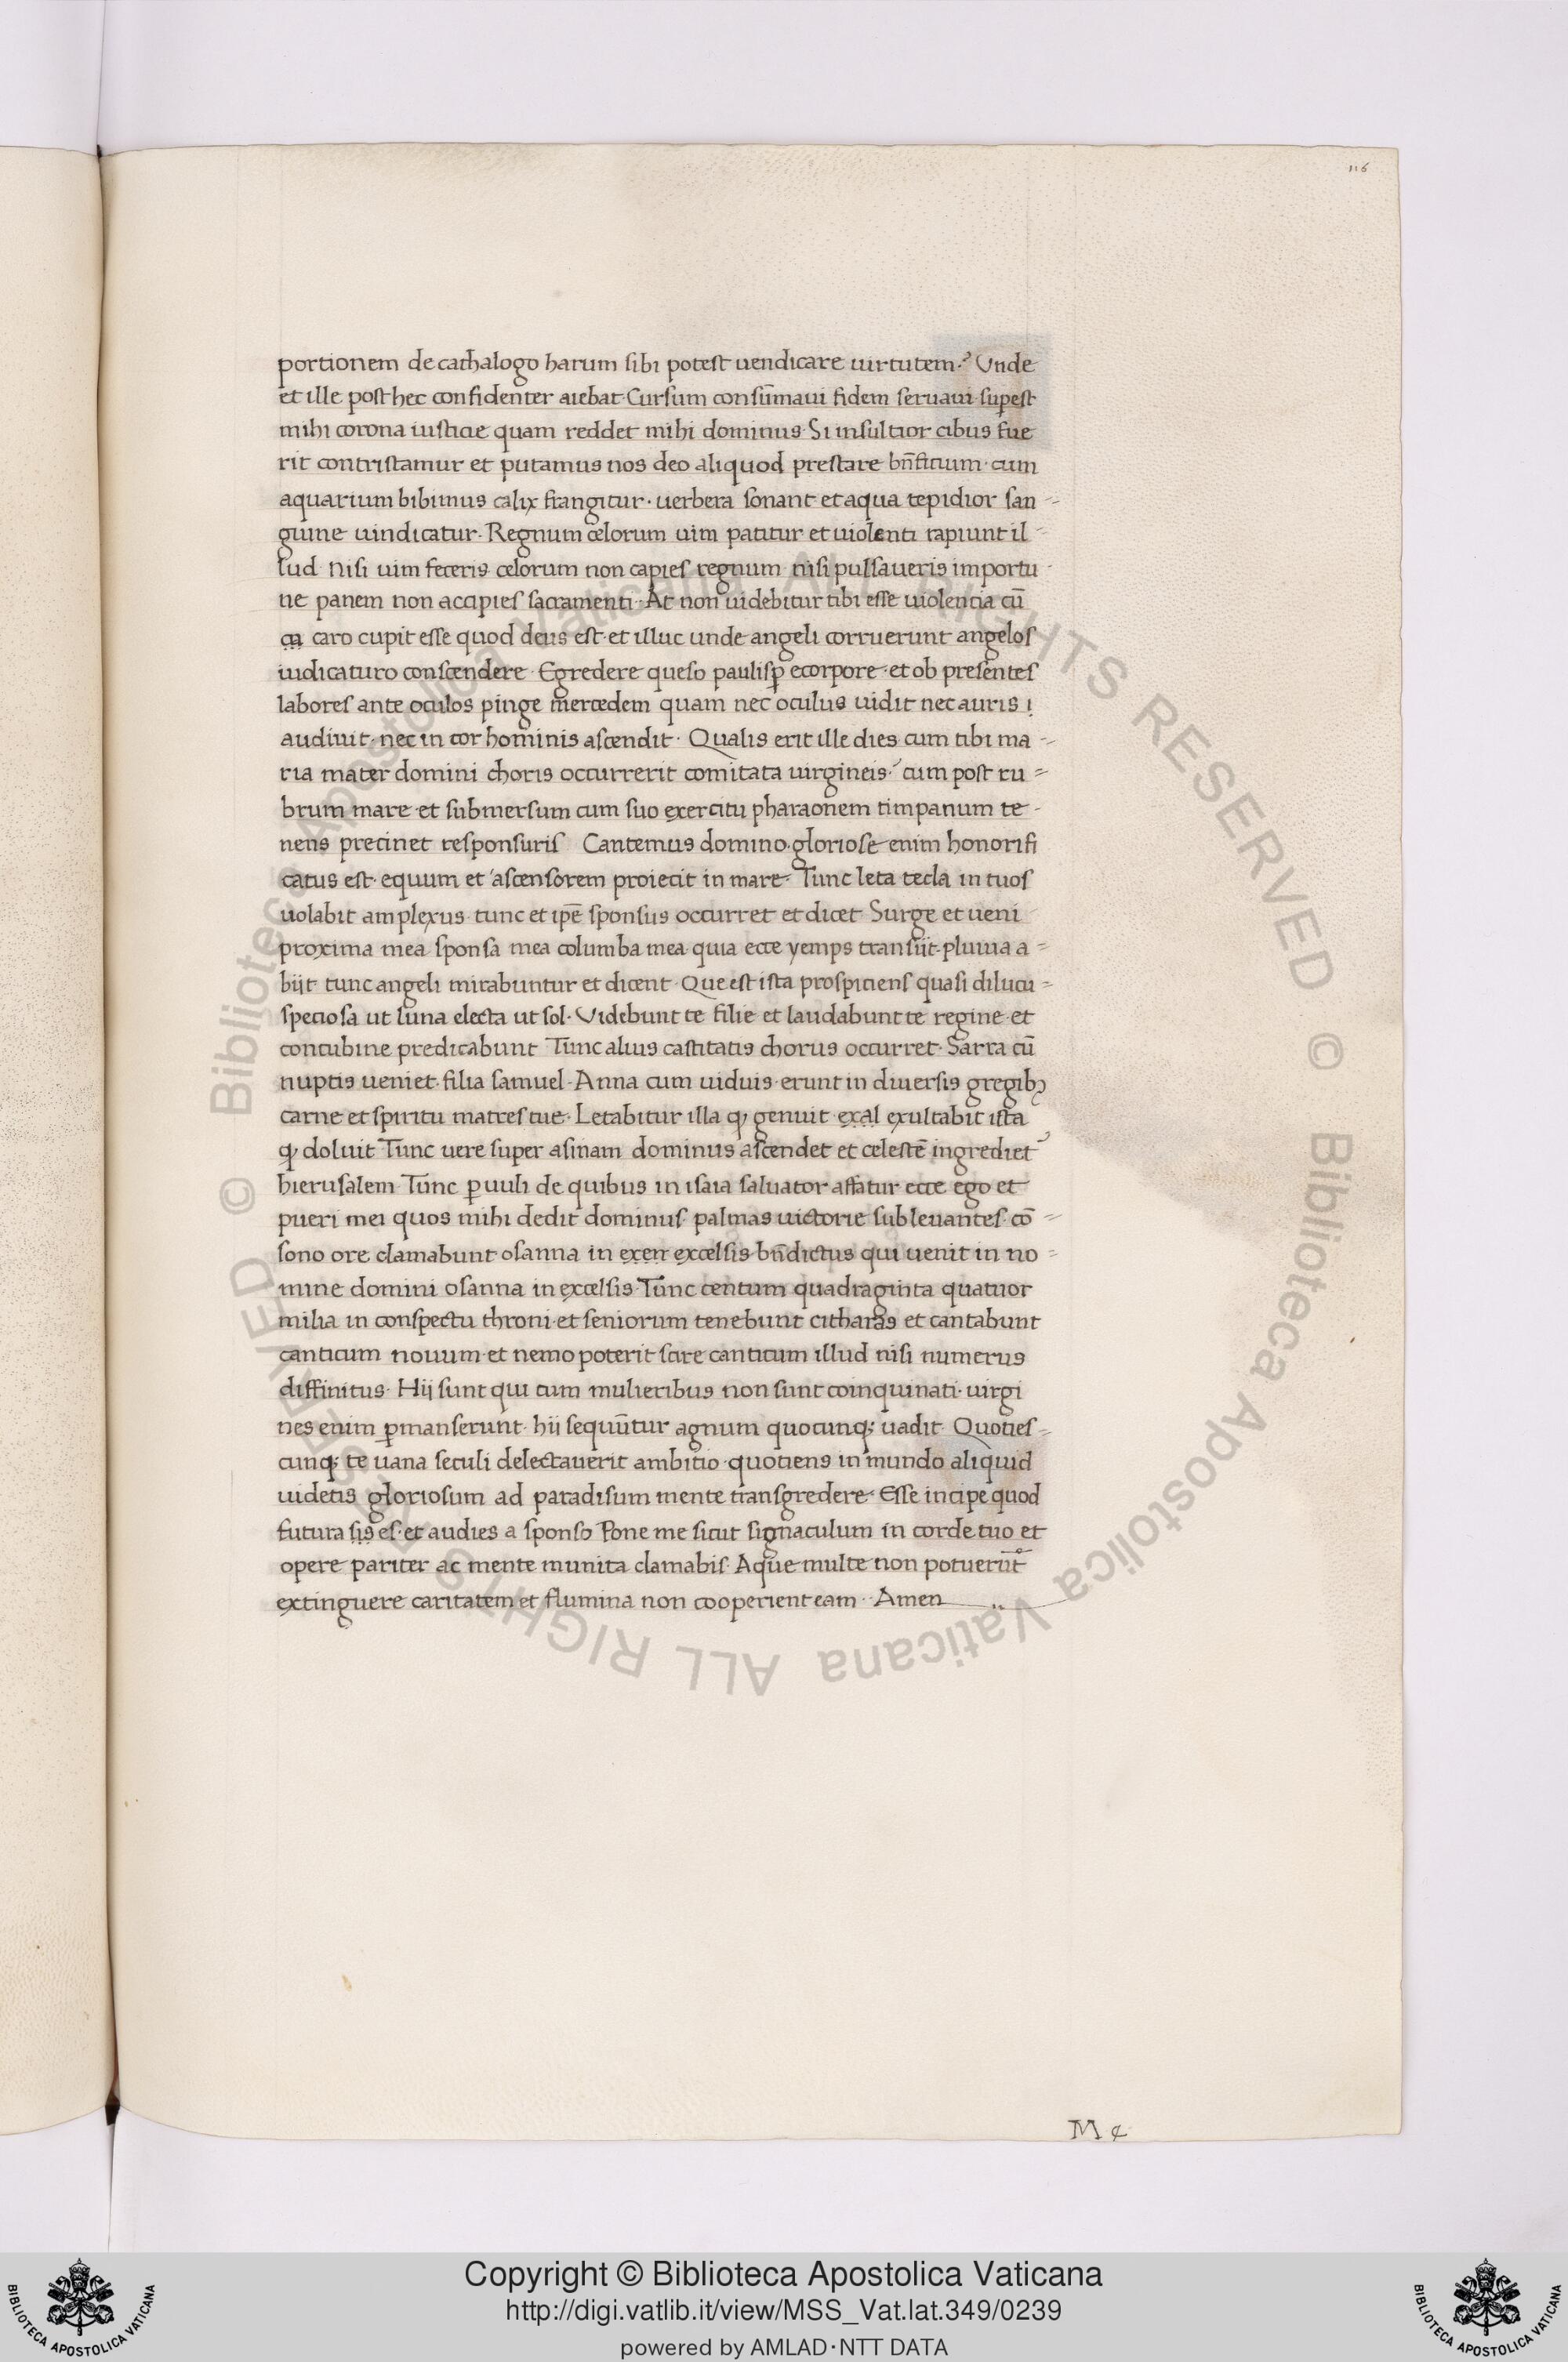 116
portionem de cathalogo harum sibi potest uendicare uirtutem? Unde
et ille post hec confidenter aiebat· Cursum consūmaui fidem seruaui· suꝑest
mihi corona iusticie quam reddet mihi dominus· Si insulsior cibus fue
rit contristamur et putamus nos deo aliquod prestare bn̄ficium· cum
aquarium bibimus calix frangitur· uerbera sonant et aqua tepidior san-
guine uindicatur· Regnum celorum uim patitur et uiolenti rapiunt il-
lud· nisi uim feceris celorum non capies regnum· nisi pulsaueris importu-
ne panem non accipies sacramenti· At non uidebitur tibi esse uiolencia cū
cu caro cupit esse quod deus est· et illuc unde angeli corruerunt angelos
iudicaturo conscendere· Egredere queso paulisꝑ e corpore· et ob presentes
labores ante oculos pinge mercedem quam nec oculus uidit nec auris i
audiuit· nec in cor hominis ascendit· Qualis erit ille dies cum tibi ma-
ria mater domini choris occurrerit comitata uirgineis· cum post ru-
brum mare· et submersum cum suo exercitu pharaonem timpanum te-
nens precinet responsuris Cantemus domino· gloriose enim honorifi
catus est· equum et ascensorem proiecit in mare· Tunc leta tecla in tuos
uolabit amplexus· tunc et ip̄e sponsus occurret et dicet Surge et ueni
proxima mea sponsa mea columba mea quia ecce yemps transiit· pluuia a-
biit tunc angeli mirabuntur et dicent· Que est ista prospiciens quasi dilucu-
speciosa ut luna electa ut sol· Videbunt te filie et laudabunt te regine· et
concubine predicabunt Tunc alius castitatis chorus occurret· Sarra cū
nuptis ueniet· filia samuel· Anna cum uiduis· erunt in diuersis gregibꝫ
carne et spiritu matres tue· Letabitur illa ꝙ genuit· exal exultabit ista
ꝙ doluit Tunc uere super asinam dominus ascendet et celestē ingrediet᷑
hierusalem Tunc ꝑuuli de quibus in isaia saluator affatur ecce ego et
pueri mei quos mihi dedit dominus· palmas uictorie subleuantes· cō-
sono ore clamabunt osanna in exen excelsis· bn̄dictus qui uenit in no-
mine domini osanna in excelsis· Tunc centum quadraginta quatuor
milia in conspectu throni· et seniorum tenebunt citharas et cantabunt
canticum nouum· et nemo poterit scire canticum illud nisi numerus
diffinitus· Hii sunt qui cum mulieribus non sunt coinquinati· uirgi
nes enim ꝑmanserunt· hii sequūtur agnum quocunqꝫ uadit· Quoties-
cunqꝫ te uana seculi delectauerit ambitio· quotiens in mundo aliquid
uidetis gloriosum ad paradisum mente transgredere· Esse incipe quod
futura sis es· et audies a sponso Pone me sicut signaculum in corde tuo et
opere pariter ac mente munita clamabis· Aque multe non potuerūt
extinguere caritatem et flumina non cooperient eam· Amen
Copyright © Biblioteca Apostolica Vaticana
http://digi.vatlib.it/view/MSS_Vat.lat.349/0239
powered by AMLAD·NTT DATA
BIBLIOTECA APOSTOLICA VATICANA
BIBLIOTECA APOSTOLICA VATICANA
© Biblioteca Apostolica Vaticana ALL RIGHTS RESERVED © Biblioteca Apostolica Vaticana ALL RIGHTS RESERVED